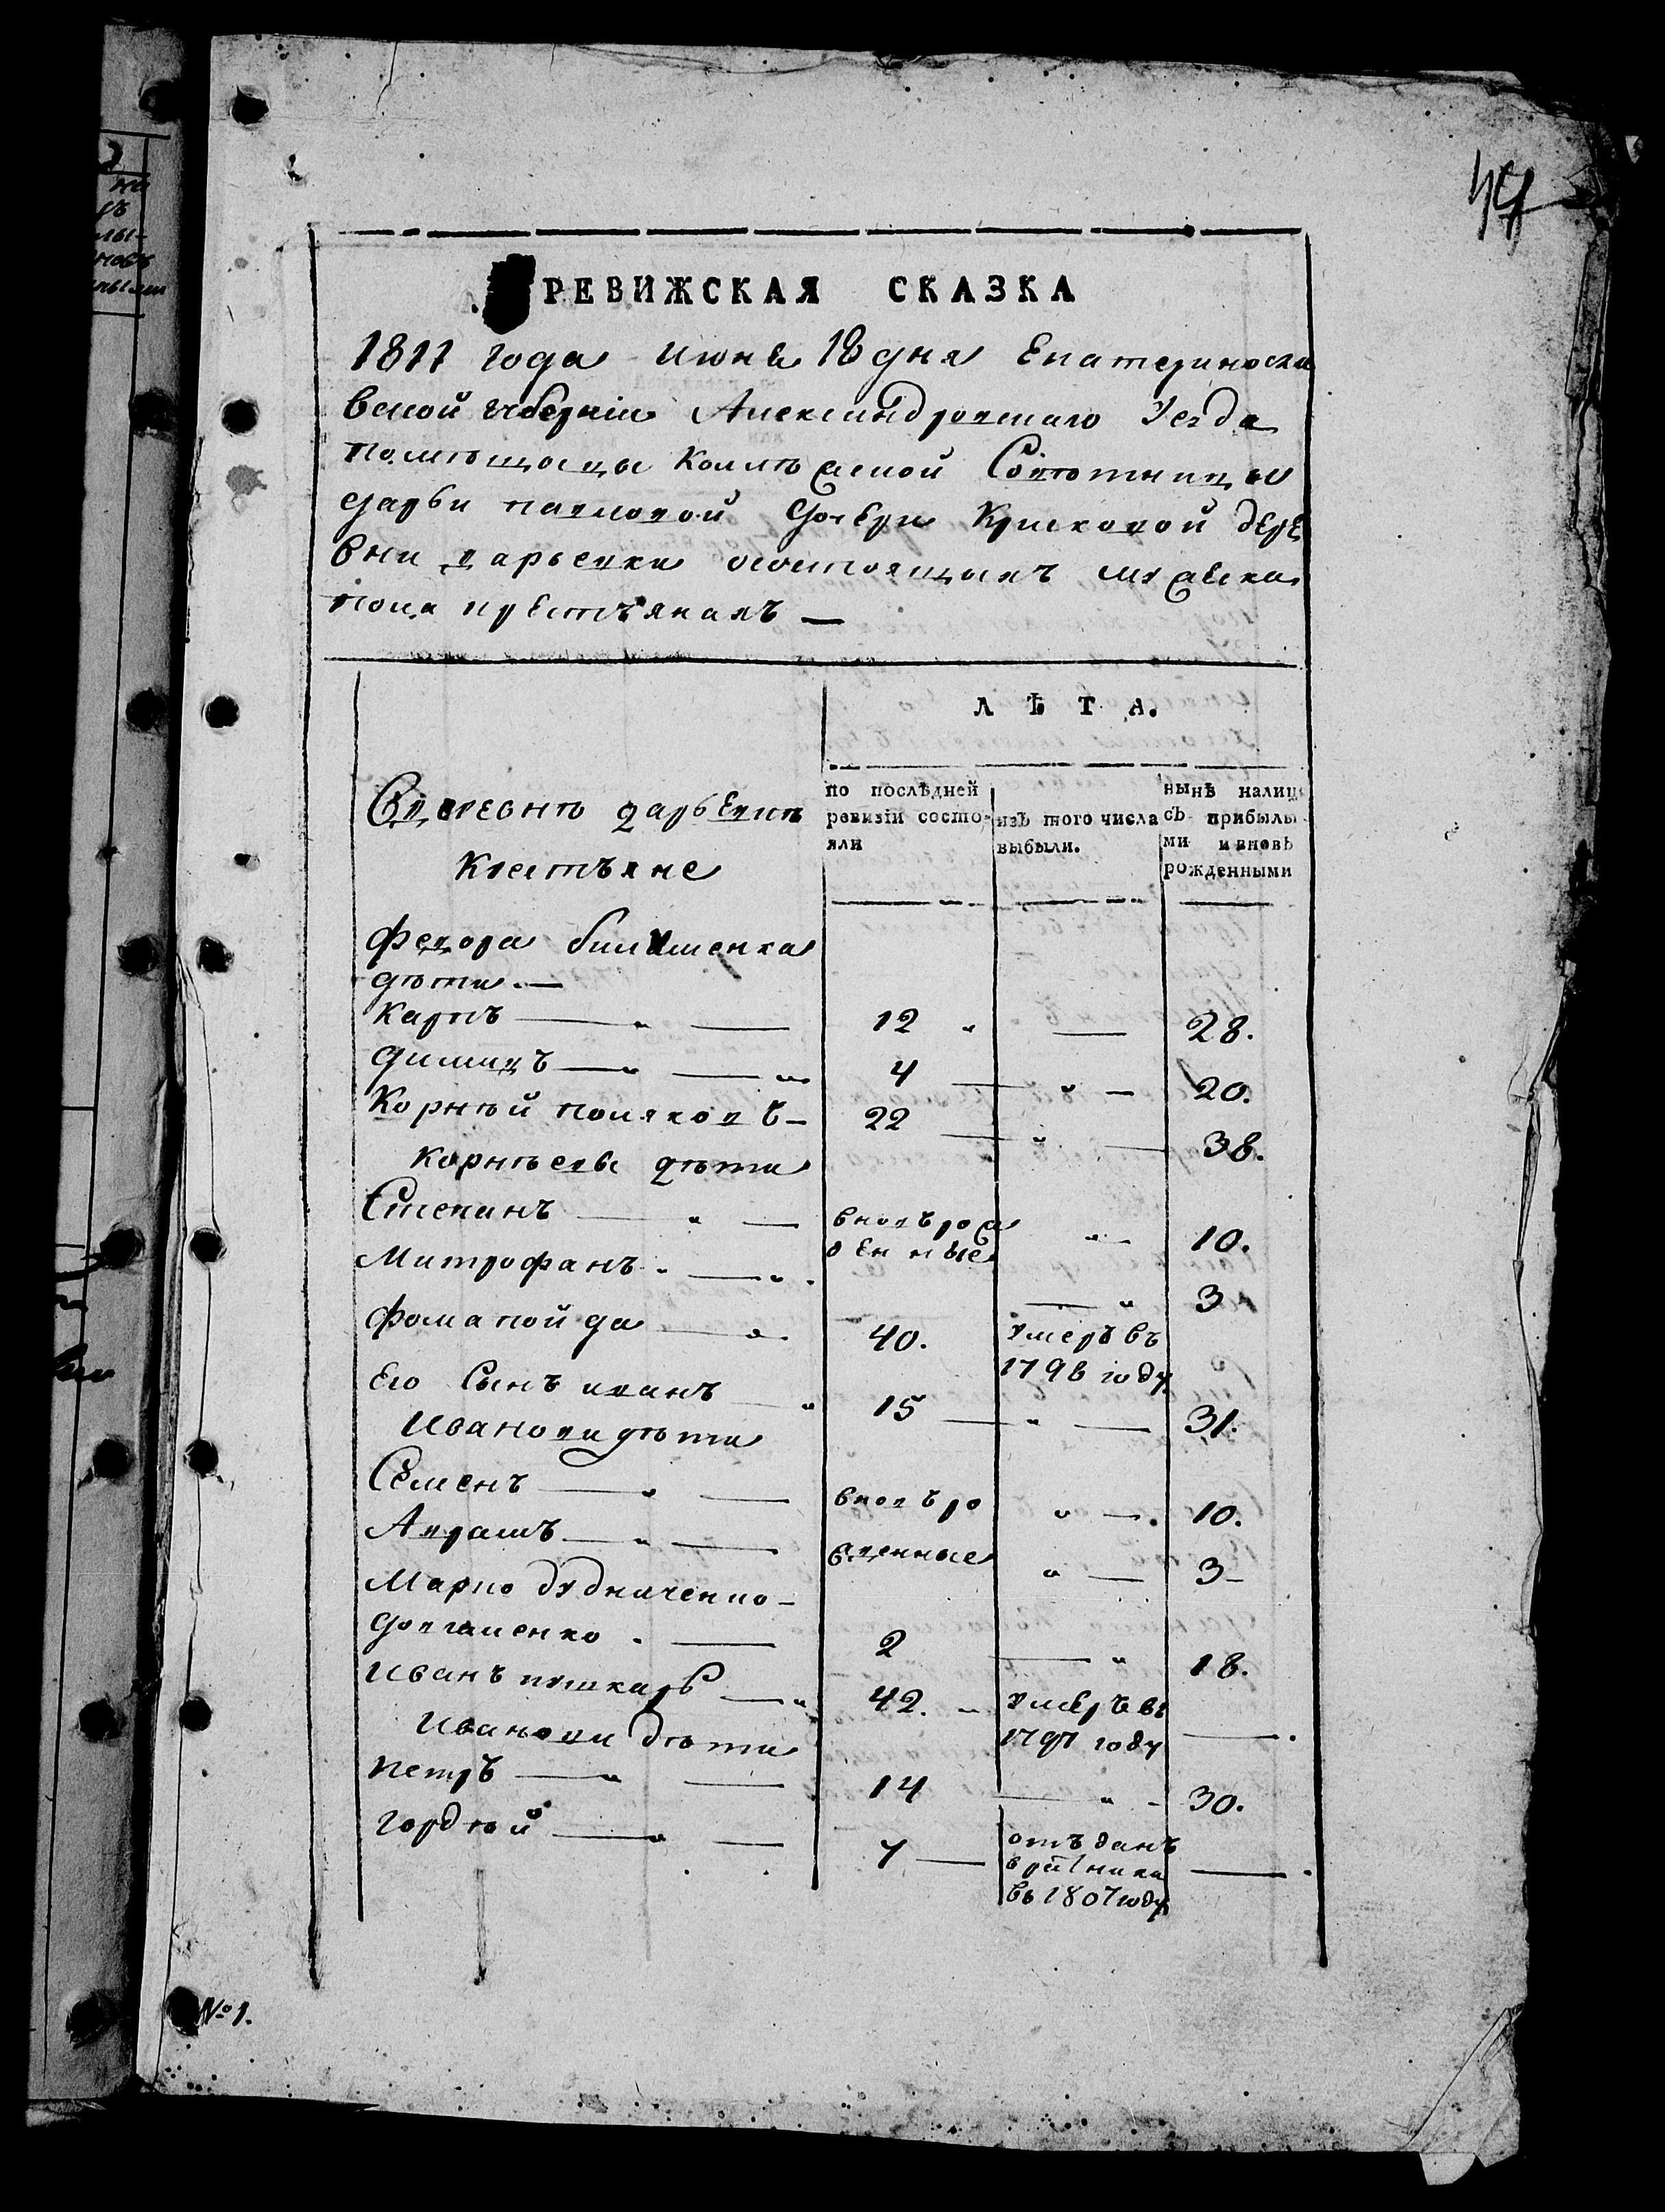 РЕВИЖСКАЯ СКАЗКА
1811 года июня 18 дня Екатериносла
вской губерніи Александровскаго Уезда
помѣщыцы Коллежской Совѣтницы
дарьи павловой дочери Крижовой дере
вни дарьевки осостоящыхъ мужеска
пола крестъянахъ —
ЛѢТА.
Вдеревнѣ дарьевкѣ
Крестъяне
по послѣдней
ревизіи состо-
яли
изъ того числа
выбыли.
нынѣ налиц
съ прибылы
ми ивновь
рожденными
федора
дѣти. —
Карпъ — 12 — 28.
димидъ — 4 — 20.
Корнѣй поляковъ — 22 — 38.
Корнѣевы дѣти
Степанъ — вновърож 10.
Митрофанъ — денные — 3
фома пойда — 40. умеръ въ
1798 году
Его Сынъ иванъ 15 — 31.
Ивановы дѣти
Семенъ — вновъро — 10.
Аврамъ — жденные — 3 —
Марко дудниченко —
долгаленко — 2 — 18.
Иванъ пушкарь — 42. — умеръ въ
1797 году —
Ивановы дѣти
петръ — 14 — 30.
гордѣй — 7 — отъданъ
въ 1807 году
№ 1.